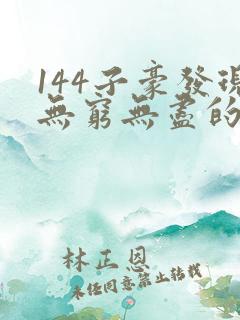 144子豪發現
無窮無盡的
林正恩
未經同意禁止轉載